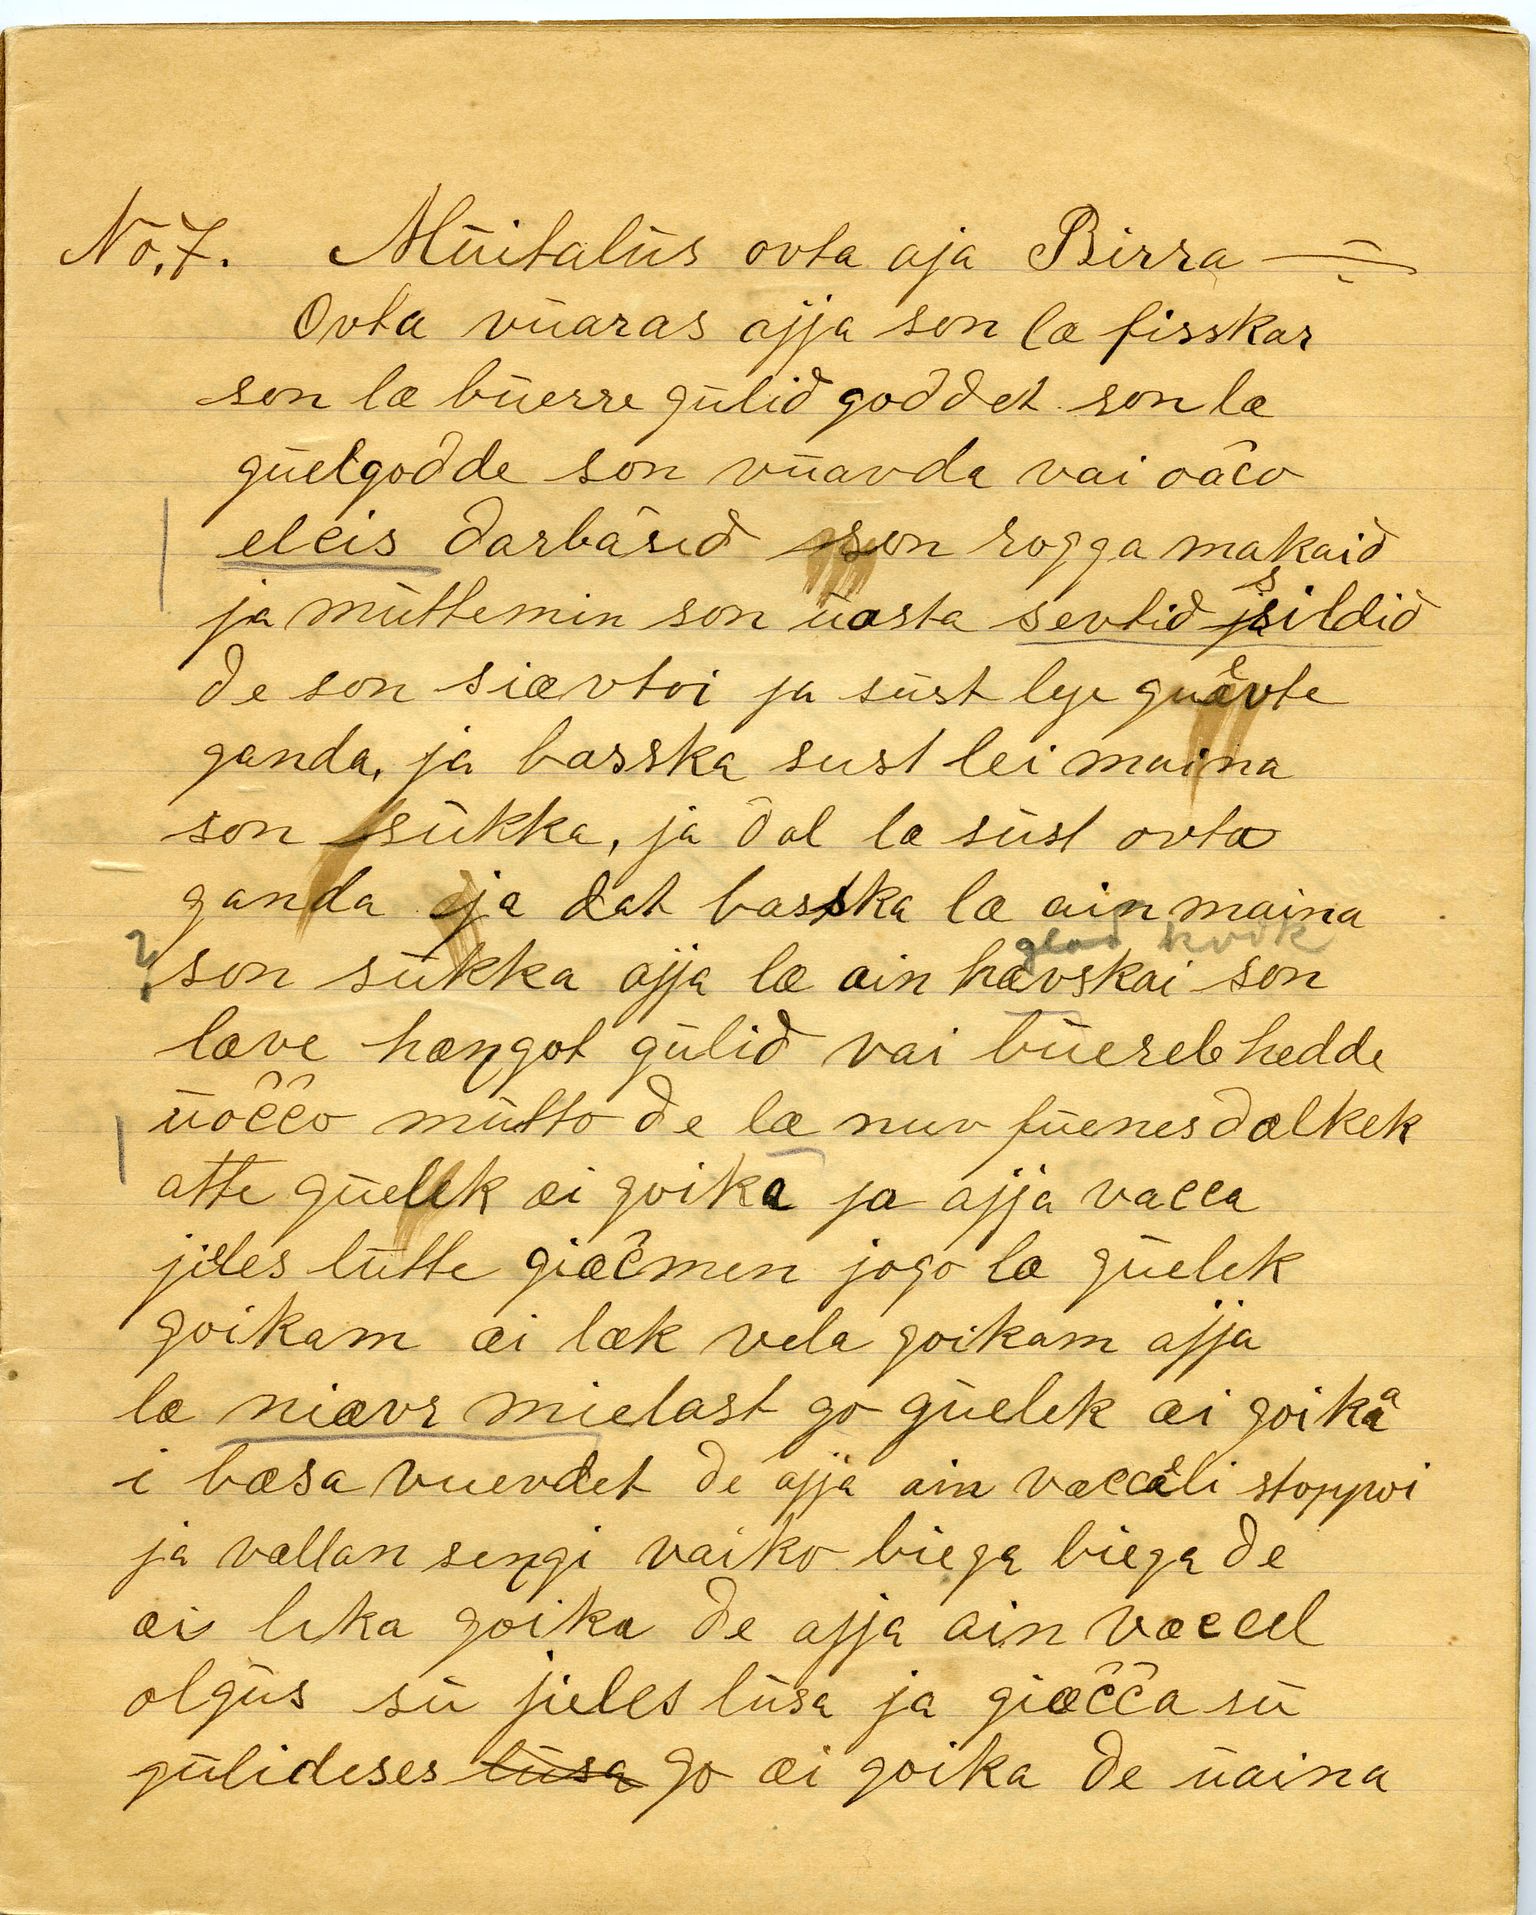 No. 7. Müitalüs ovta aja Birra
Ovta vüaras ajja son læ fisskar
son læ büerre gülid goddet son læ
güelgodde son vüavda vai oǎco
eleis darbǎsid son rogga makaid
ja müttemin son üosta sevtid sildid
de son siævtoi ja süst leje guævte
ganda, ja basska sust lei maina
son sükka, ja dal læ süst ovta
ganda ja dat basska læ ain maina
glad kvik
? son sükka ajja læ ain hævskai son
læve hæŋgot gülid vai büereb hedde
üoččo mütto de læ nuv füenes dalkek
atte güelek æi goika ja ajja vacca
jieles lütte giæčmen jogo læ güelek
goikam æi læk vela goikam ajja
læ niævr mielast go güelek æi goika
i bæsa vuevdet de ajja ain væccali stoppoi
ja vællan seŋgi vaiko biega biega de
æi leka goika de ajja ain væccel
olgüs sü jieles lüsa ja giæčča sü
gülideses lüsa go æi goika de üaina